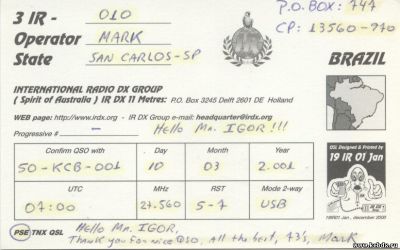 P.O.BOX: 747
CP: 13560-970
3 IR - 010
Operator MARK
State SAN CARLOS-SP
BRAZIL
INTERNATIONAL RADIO DX GROUP
( Spirit of Australia ) IR DX 11 Metres: P.O. Box 3245 Delft 2601 DE Holland
WEB page: http://www.irdx.org - IR DX Group e-mail: headquarter@irdx.org
Progressive # - Hello Mr. IGOR!!!
QSL Designed & Printed by
19 IR 01 Jan
Confirm QSO with Day Month Year
50-KCB-001 10 03 2.001
UTC MHz RST Mode 2-way
07:00 27.560 5-7 USB
19IR01 Jan, december 2000
PSE TNX QSL Hello Mr. IGOR,
Thank you for nice QSO, all the best, 73's, Mark
www.kabdx.ru